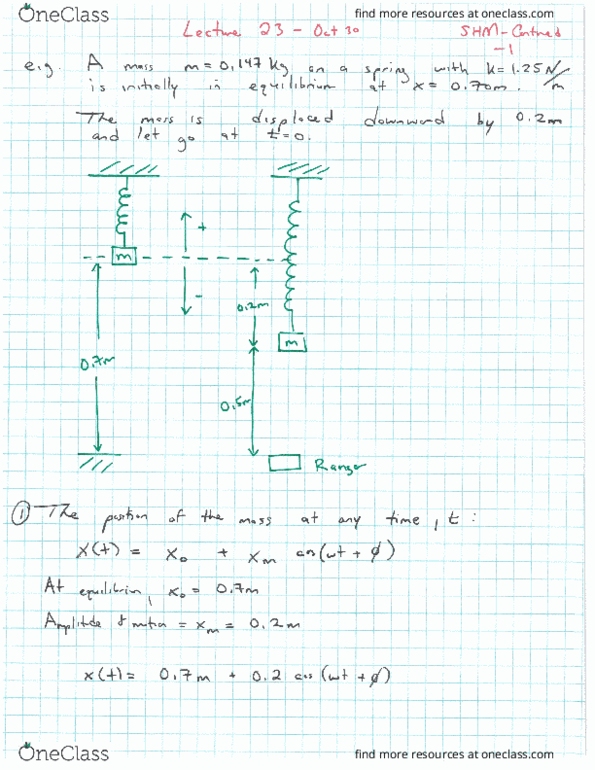 OneClass
find more resources at oneclass.com
Lecture 23 - Oct 30
SHM-Continued
-1
e.g. A mass m = 0.147 kg on a spring with k = 1.25 N/m
is initially in equilibrium at x = 0.70m.
The mass is displaced downward by 0.2m
and let go at t=0.
+
m
-
0.2m
m
0.7m
0.5m
Ranger
① The position of the mass at any time, t:
x(t) = x₀ + xₘ cos(ωt + φ)
At equilibrium, x₀ = 0.7m
Amplitude of motion = xₘ = 0.2m
x(t) = 0.7m + 0.2 cos(ωt + φ)
OneClass
find more resources at oneclass.com